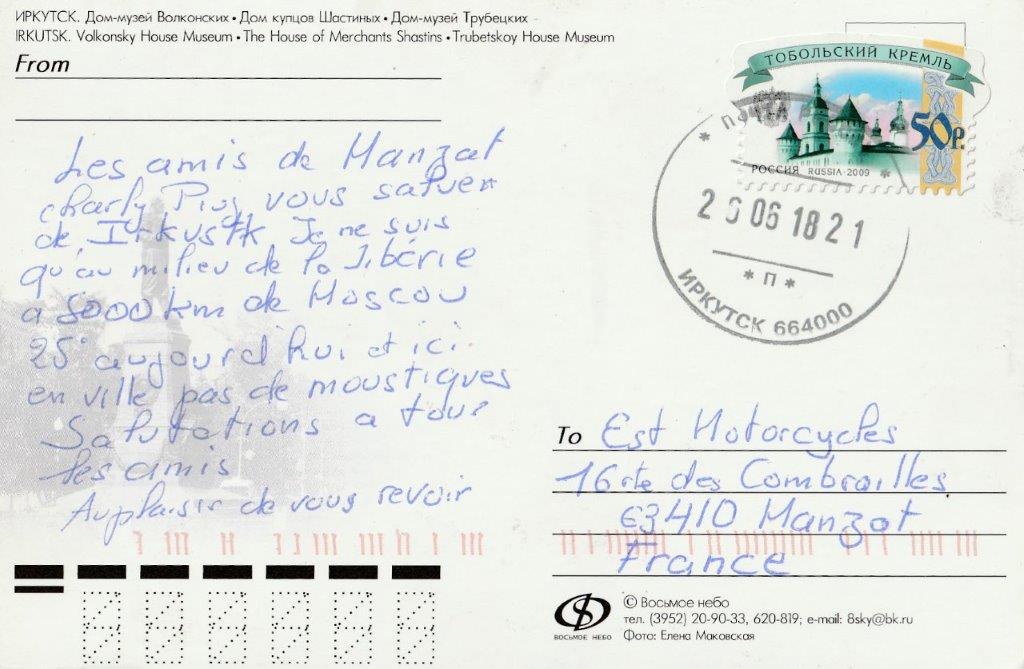 ИРКУТСК. Дом-музей Волконских • Дом купцов Шастиных • Дом-музей Трубецких
IRKUTSK. Volkonsky House Museum • The House of Merchants Shastins • Trubetskoy House Museum
From
Les amis de Manzat
charly Piog vous saluent
de Irkustk Je ne suis
qu'au milieu de la Sibérie
a 5000 km de Moscou
25° aujourd'hui et ici
en ville pas de moustiques
Salutations a tous
les amis
Au plaisir de vous revoir
ТОБОЛЬСКИЙ КРЕМЛЬ
50р.
РОССИЯ RUSSIA·2009
* ПОЧТА *
2 06 18 21
* П *
ИРКУТСК 664000
To Est Motorcycles
16 rte des Combrailles
63410 Manzat
France
ВОСЬМОЕ НЕБО
© Восьмое небо
тел. (3952) 20-90-33, 620-819; e-mail: 8sky@bk.ru
Фото: Елена Маковская